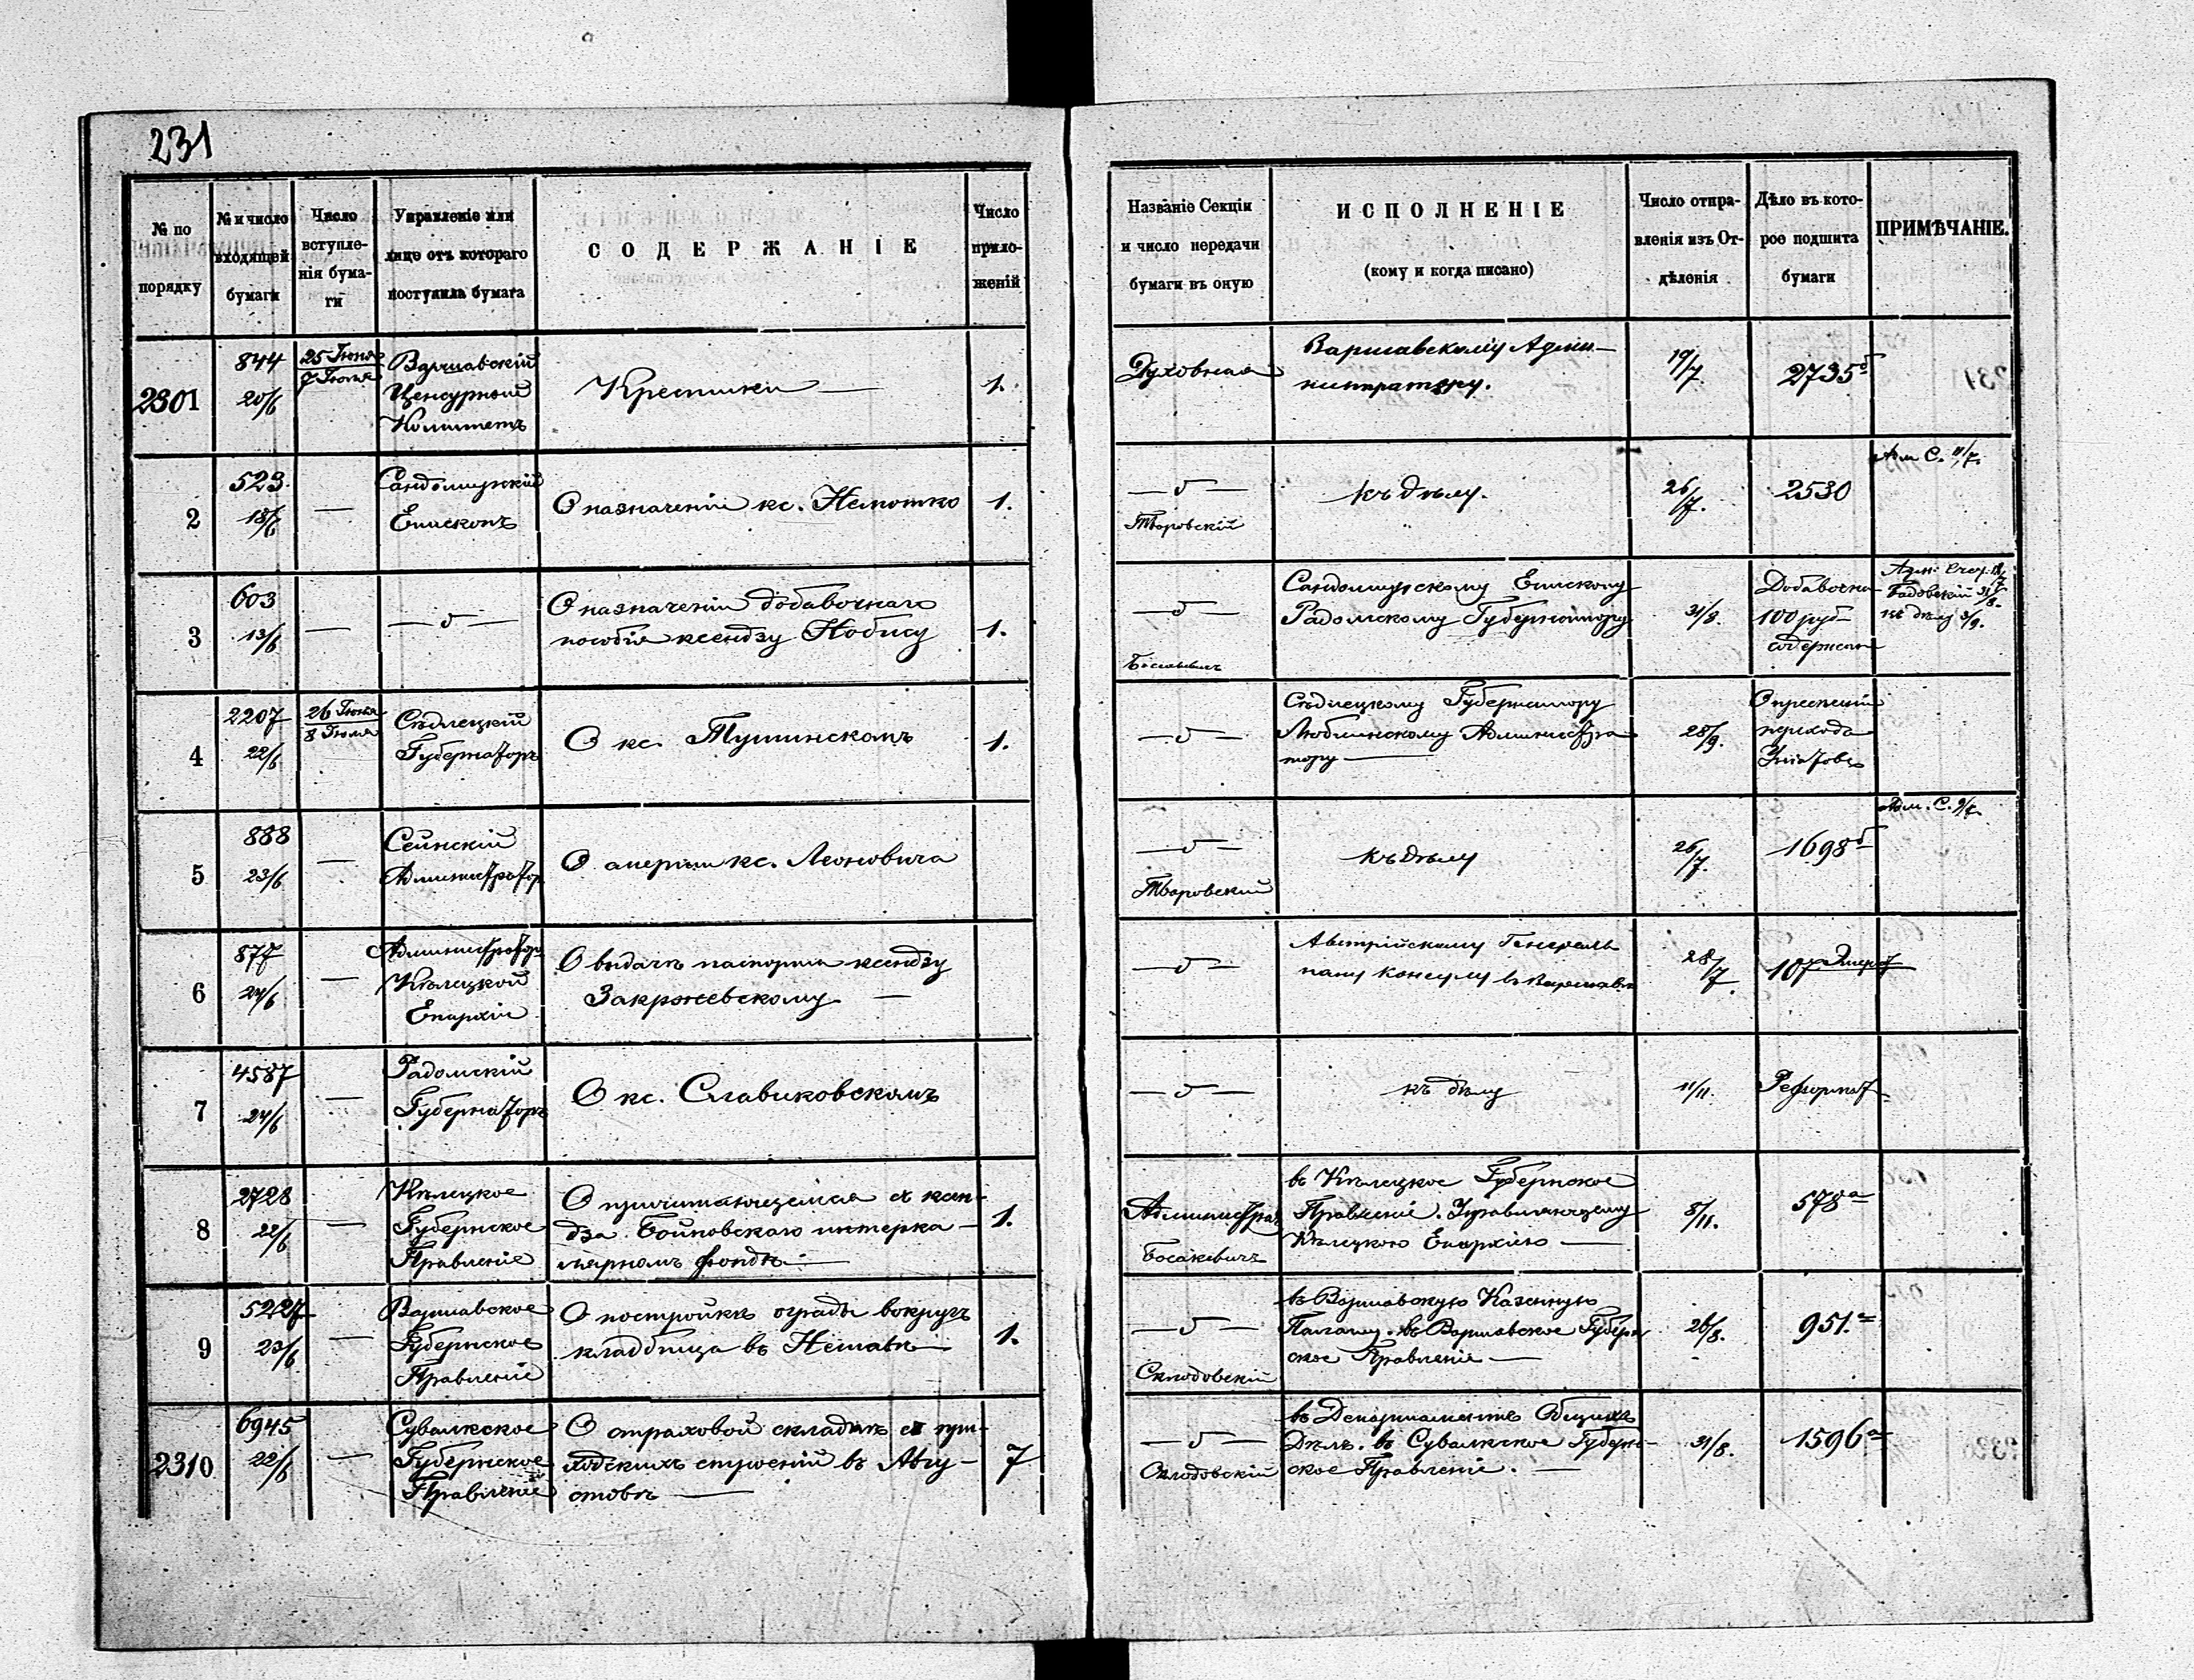 231
№ по порядку
№ и число входящей бумаги
Число вступле-
нія бума-
ги
Управленіе или
лице отъ котораго
поступила бумага
СОДЕРЖАНІЕ
Число
прило-
женій
Названіе Секціи
и число передачи
бумаги въ оную
ИСПОЛНЕНІЕ
(кому и когда писано)
Число отпра-
вленія изъ От-
дѣленія
Дѣло въ кото-
рое подшита
бумаги
ПРИМѢЧАНІЕ.
2301
844
20/6
25 Іюня
7 Іюля
Варшавскій
Цензурный
Комитетъ
Крестики —
1.
Духовная
Варшавскому Адми-
нистратору.
19/7
2735б
2
523.
18/6
—
Сандомирскій
Епископъ
О назначеніи кс.
1.
— " —
Творовскій
къ дѣлу.
26/7.
2530
Адм. С. 11/7.
3
603
13/6
—
— " —
О назначеніи добавочнаго
пособія ксендзу Нобису
1.
— " —
Сандомирскому Епископу
Радомскому Губернатору
31/8.
Добавочн
100 руб
содержан
къ дѣлу 3/9.
4
2207
22/6
26 Іюня
8 Іюля
Сѣдлецкій
Губернаторъ
О кс. Тушинскомъ
1.
— " —
Сѣдлецкому Губернатору
Люблинскому Администра
тору —
28/9.
перехода
Уніатовъ
5
888
23/6
—
Сейнскій
Администратор
О смерти кс. Леоновича
— " —
Творовскій
къ дѣлу
26/7.
1698б
Адм. С. 9/7.
6
877
24/6
—
Администраторъ
Кѣлецкой
Епархіи
О выдачѣ паспорта ксендзу
Закржевскому —
— " —
Австрійскому Генераль
ному Консулу въ Варшавѣ
28/7.
107
7
4587
24/6
—
Радомскій
Губернаторъ
О кс. Славиковскомъ
— " —
къ дѣлу
11/11.
Реформат
8
2728
22/6
—
Кѣлецкое
Губернское
Правленіе
О причитающемся съ ксен-
дза Бойновскаго интерка-
лярномъ фондѣ —
1.
Администрат
Босакевичъ
въ Кѣлецкое Губернское
Правленіе. Управляющему
Кѣлецкою Епархіею —
8/11.
578а
9
5227
23/6
—
Варшавское
Губернское
Правленіе
О постройкѣ ограды вокругъ
кладбища въ
1.
— " —
Склодовскій
въ Варшавскую Казенную
Палату. въ Варшавское Губерн
ское Правленіе —
26/8.
951.а
2310
6945
22/6
—
Сувалкское
Губернское
Правленіе
О страховой складкѣ съ при-
ходскихъ строеній въ Авгу-
стовѣ —
7
— " —
Склодовскій
въ Департаментъ Общихъ
Дѣлъ. въ Сувалкское Губерн-
ское Правленіе. —
31/8.
1596а